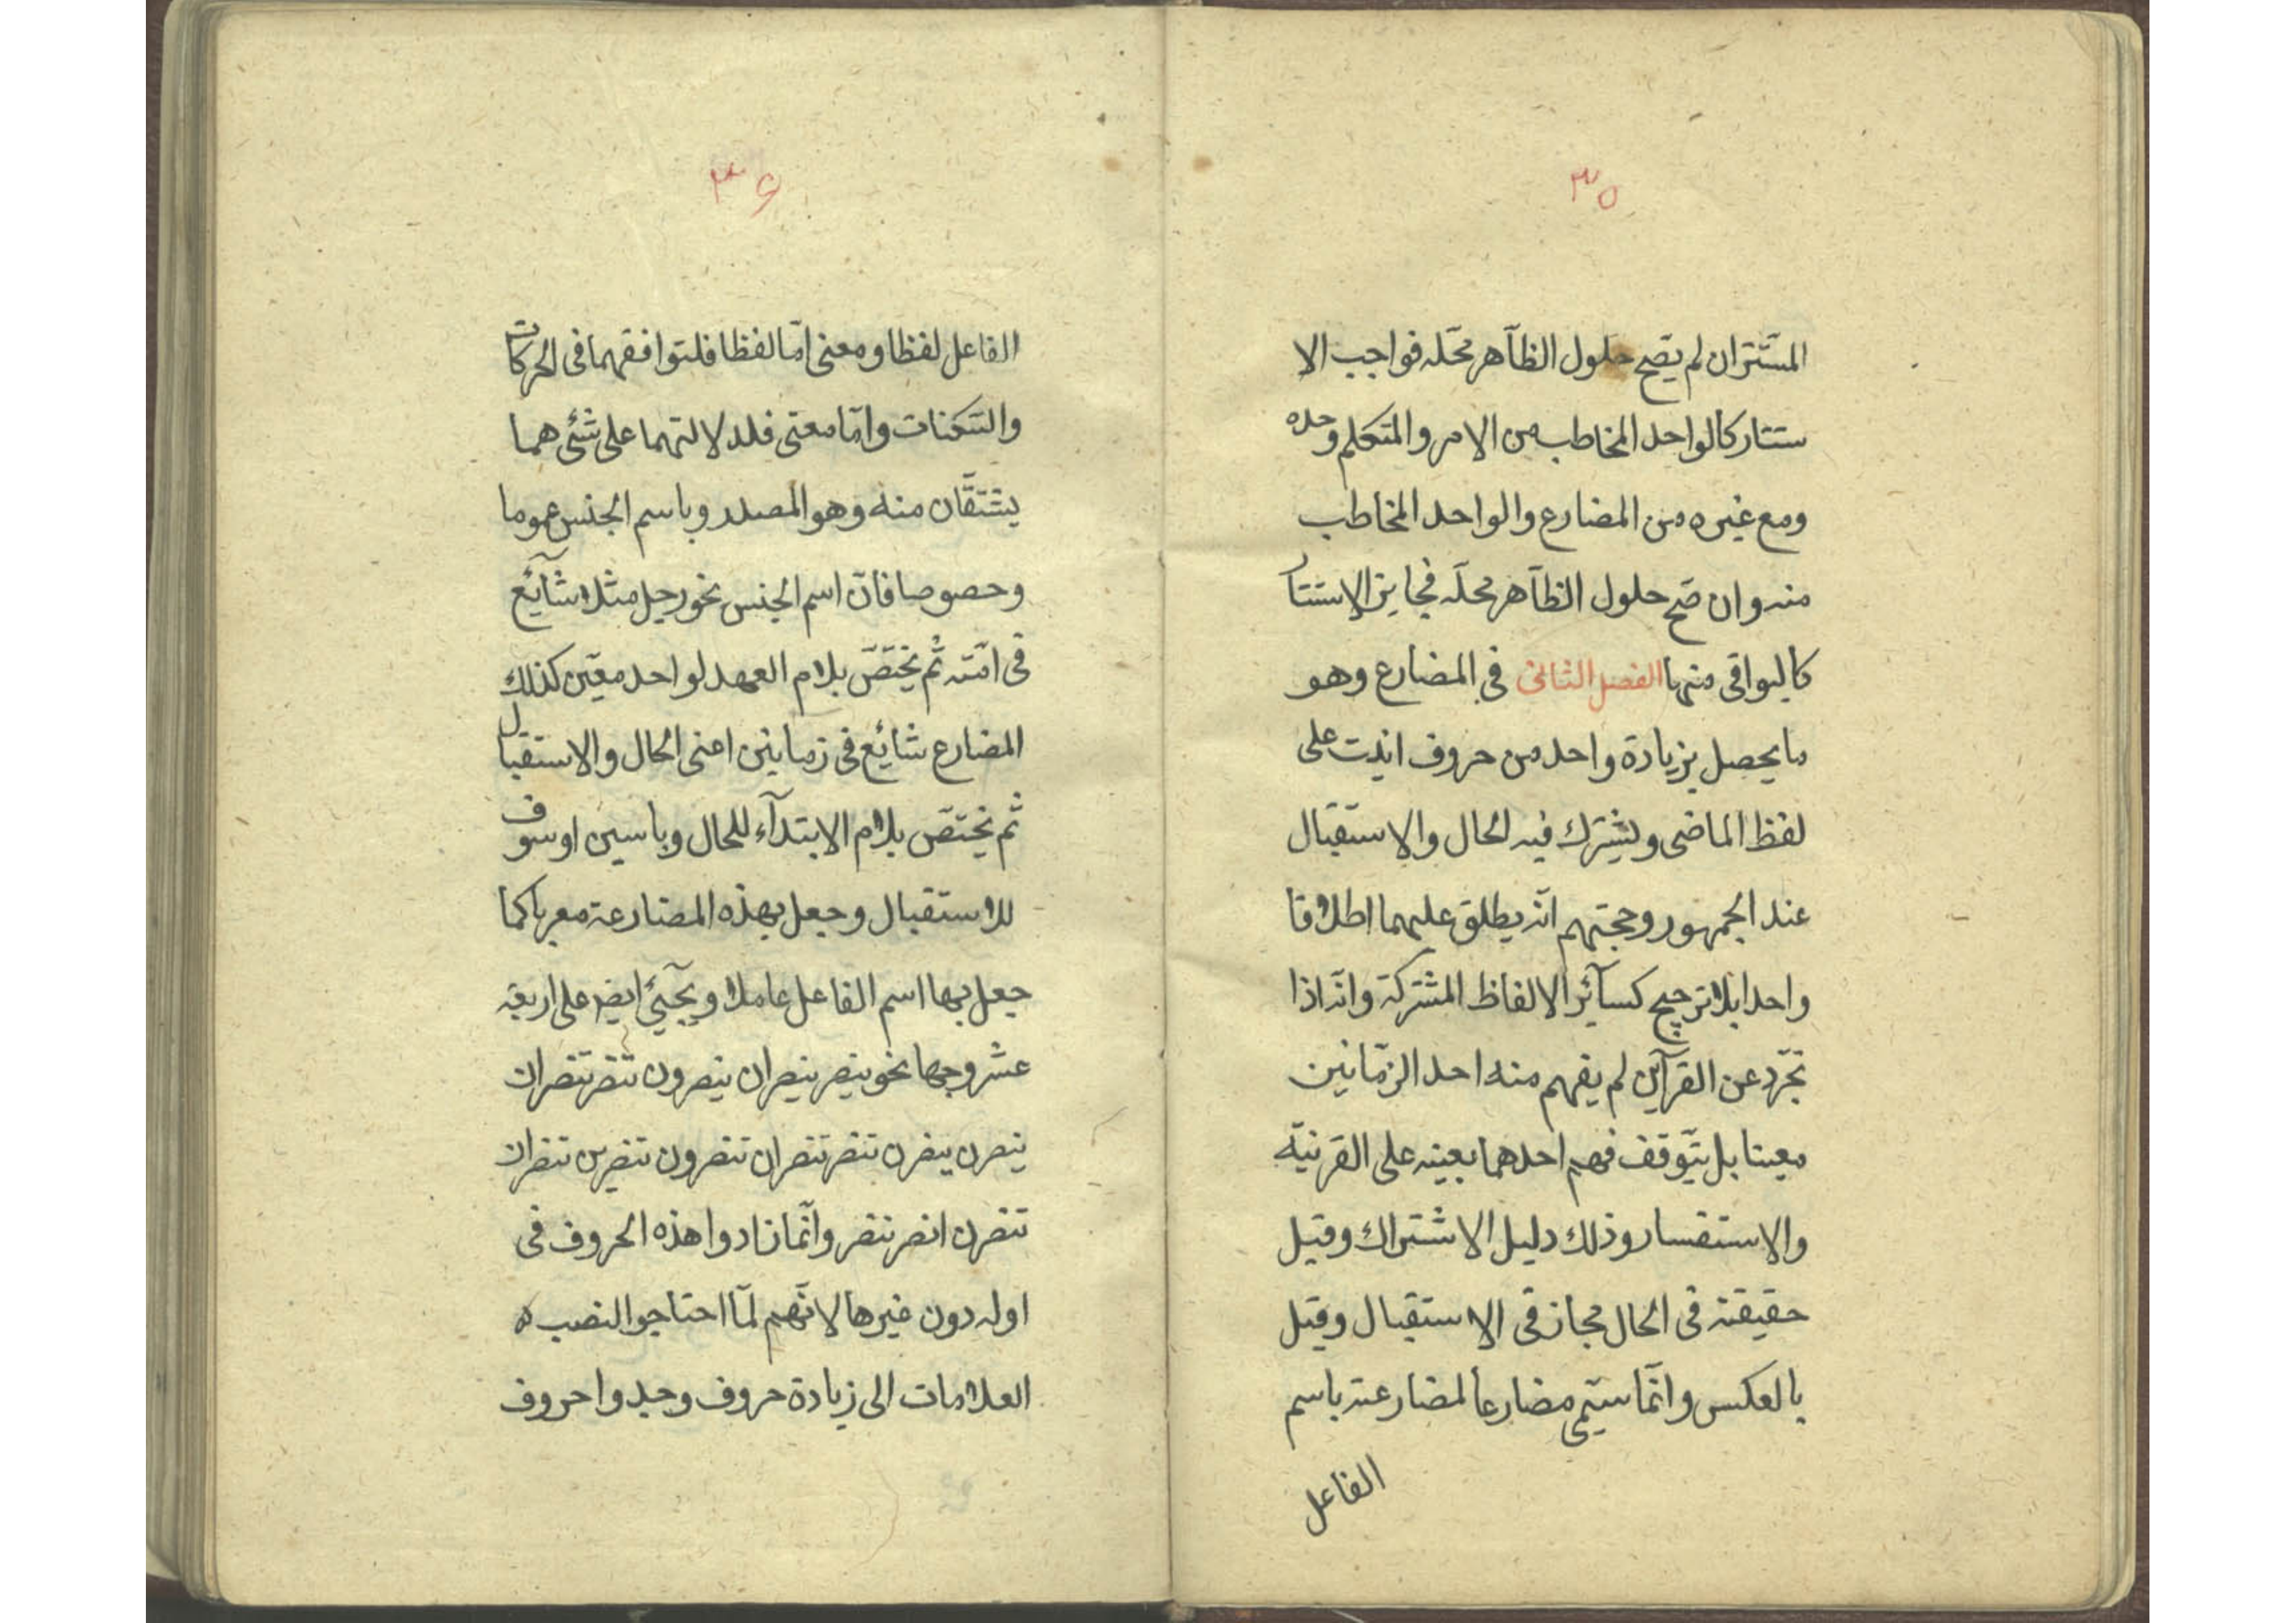 ٣٥
المستتران لم يصح حلول الظآهر محلّه فواجب الا
ستتار كالواحد المخاطب من الامر والمتكلم وحده
ومع غيره من المضارع والواحد المخاطب
منه وان صّح حلول الظآهر محلّه فجايز الاستتار
كالبواقى منها الفصل الثانى فى المضارع وهو
مايحصل بزيادة واحد من حروف اتيت على
لفظ الماضى ويشترك فيه الحال والاستقبال
عند الجمهور وحجتهم انّه يطلق عليهما اطلاقا
واحدا بلا ترجيح كسآئر الالفاظ المشتركة وانّه اذا
تجرّد عن القرآين لم يفهم منه احد الزّمانين
معينا بل يتّوقف فهم احدهما بعينه على القرنيّة
والاستفسار وذلك دليل الاشتراك وقيل
حقيقته فى الحال مجاز فى الاستقبال وقيل
بالعكس وانّما سمّى مضارعا لمضارعته باسم
الفاعل
٣۶
الفاعل لفظا ومعنى امّا لفظا فلتوافقهما فى الحركات
والسّكنات وامّا معنى فلدلالتهما على شئى هما
يشتقّان منه وهو المصدر وباسم الجنس عموما
وخصوصا فانّ اسم الجنس نحو رجل مثلا شآئع
فى امّته ثم يختصّ بلام العهد لواحد معيّن كذلك
المضارع شائع فى زمانين اعنى الحال والاستقبال
ثم يختصّ بلام الابتدآء للحال وباسين اوسوف
للاستقبال وجعل بهذه المضارعة معرباكما
جعل بها اسم الفاعل عاملا ويجيئ ايضر على اربعة
عشر وجها نحو ينصر ينصران ينصرون تنصر تنصران
ينصرن ينصرن تنصر تنصران تنصرون تنصرين تنصران
تنصرن انصر ننصر وانّما زادوا هذه الحروف فى
اوله دون غيرها لانّهم لمّا احتاجوا لنصب
العلامات الى زيادة حروف وجدوا حروف